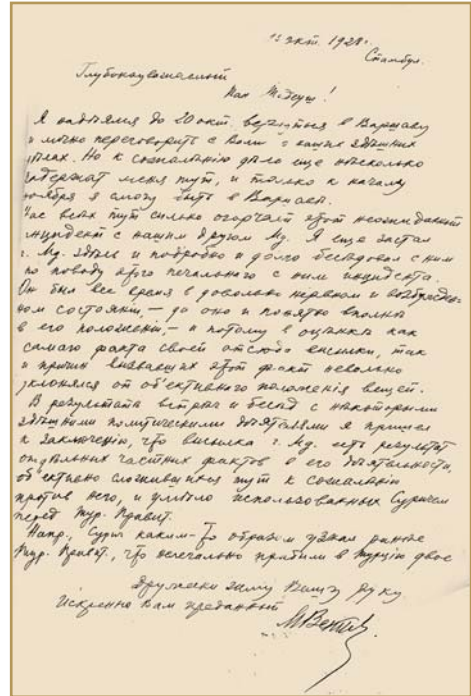 13 окт. 1928 г.
Стамбул.
Глубокоуважаемый
Пан Тадеуш!
Я надѣялся до 20 окт. вернуться в Варшаву
и лично переговорить с Вами о наших здѣшних
дѣлах. Но к сожалѣнію дѣла еще нѣсколько
задержат меня тут, и только к началу
ноября я смогу быть в Варшавѣ.
Нас всѣх тут сильно огорчает этот неожиданный
инцидент с нашим другом Мд. Я еще застал
г. Мд. здѣсь и подробно и долго бесѣдовал с ним
по поводу этого печального с ним инцидента.
Он был все время в довольно нервном и возбужден-
ном состоянии, – да оно и понятно вполнѣ
в его положеніи, – и потому в оцѣнкѣ как
самаго факта своей отсюда высылки, так
и причин вызвавших этот факт невольно
уклонялся от об'ективнаго положенія вещей.
В результатѣ встрѣч и бесѣд с нѣкоторыми
здѣшними политическими дѣятелями я пришел
к заключенію, что высылка г. Мд. есть результат
отдѣльных частных фактов в его дѣятельности,
об'ективно сложившихся тут к сожалѣнію
против него, и умѣло использованных Сурицем
перед Тур. Правит.
Напр., Суриц каким-то образом узнал раньше
Тур. Правит., что нелегально прибыли в Турцію двое
Дружески жму Вашу руку
Искренно Вам преданный